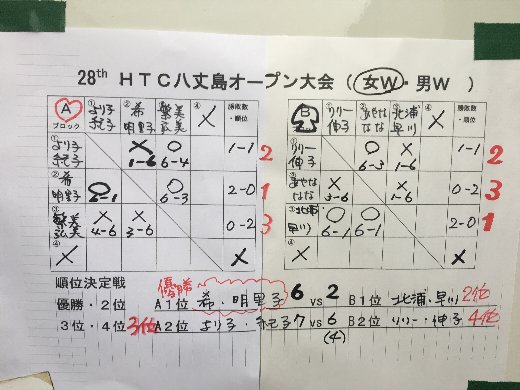 28th HTC八丈島オープン大会 ( 女W ・ 男W )
A ブロック ①より子 紀子 ②希 明里子 ③繁美 弘美 ④ × 勝敗数・順位
①より子 紀子 × 1-6 ○ 6-4 1-1 2
②希 明里子 ○ 6-1 ○ 6-3 2-0 1
③繁美 弘美 × 4-6 × 3-6 0-2 3
④ × ×
B ①リリー 伸子 ②あやな なな ③北浦 早川 ④ × 勝敗数・順位
①リリー 伸子 ○ 6-3 × 1-6 1-1 2
②あやな なな × 3-6 × 1-6 0-2 3
③北浦 早川 ○ 6-1 ○ 6-1 2-0 1
④ × ×
順位決定戦 優勝
優勝・2位 A1位 希・明里子 6 vs 2 B1位 北浦・早川 2位
3位・4位 3位 A2位 より子・紀子 7 vs 6 B2位 リリー・伸子 4位
(4)